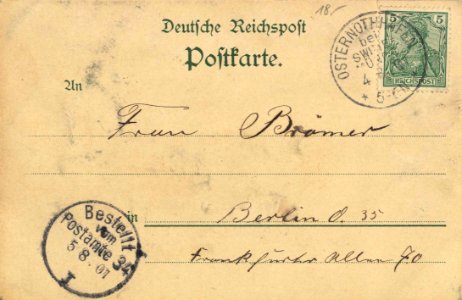 18.-
Deutsche Reichspost
Postkarte.
5 5
REICHSPOST
OSTERNOTHHAFEN
bei
SWIN
4
* 5-6
An
Frau Brömer
in
Berlin O. 35
Frankfurter Allee 70
Bestellt
vom
Postamte 34
5.8.01
I